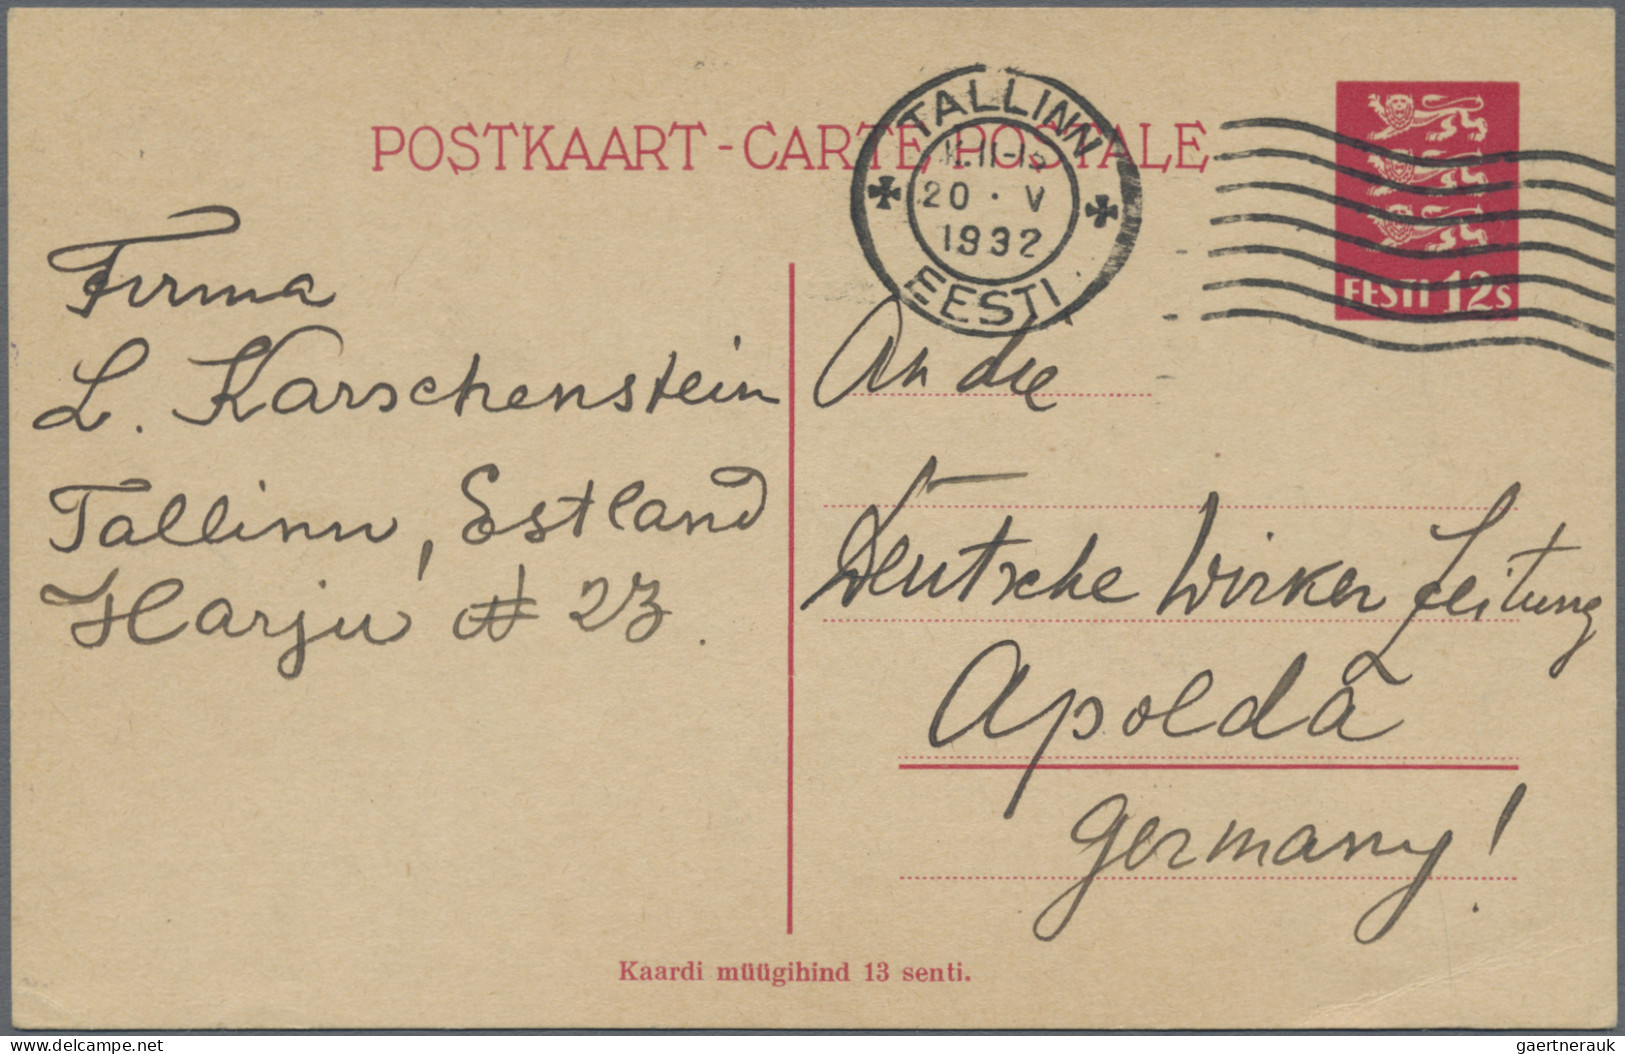 POSTKAART - CARTE POSTALE
TALLINN
20 · V
1932
EESTI
EESTI 12s
Firma
L. Karschenstein
Tallinn, Estland
Harju # 23.
An die
Deutsche Wirker Zeitung
Apolda
Germany!
Kaardi müügihind 13 senti.
delcampe.net
gaertnerauk